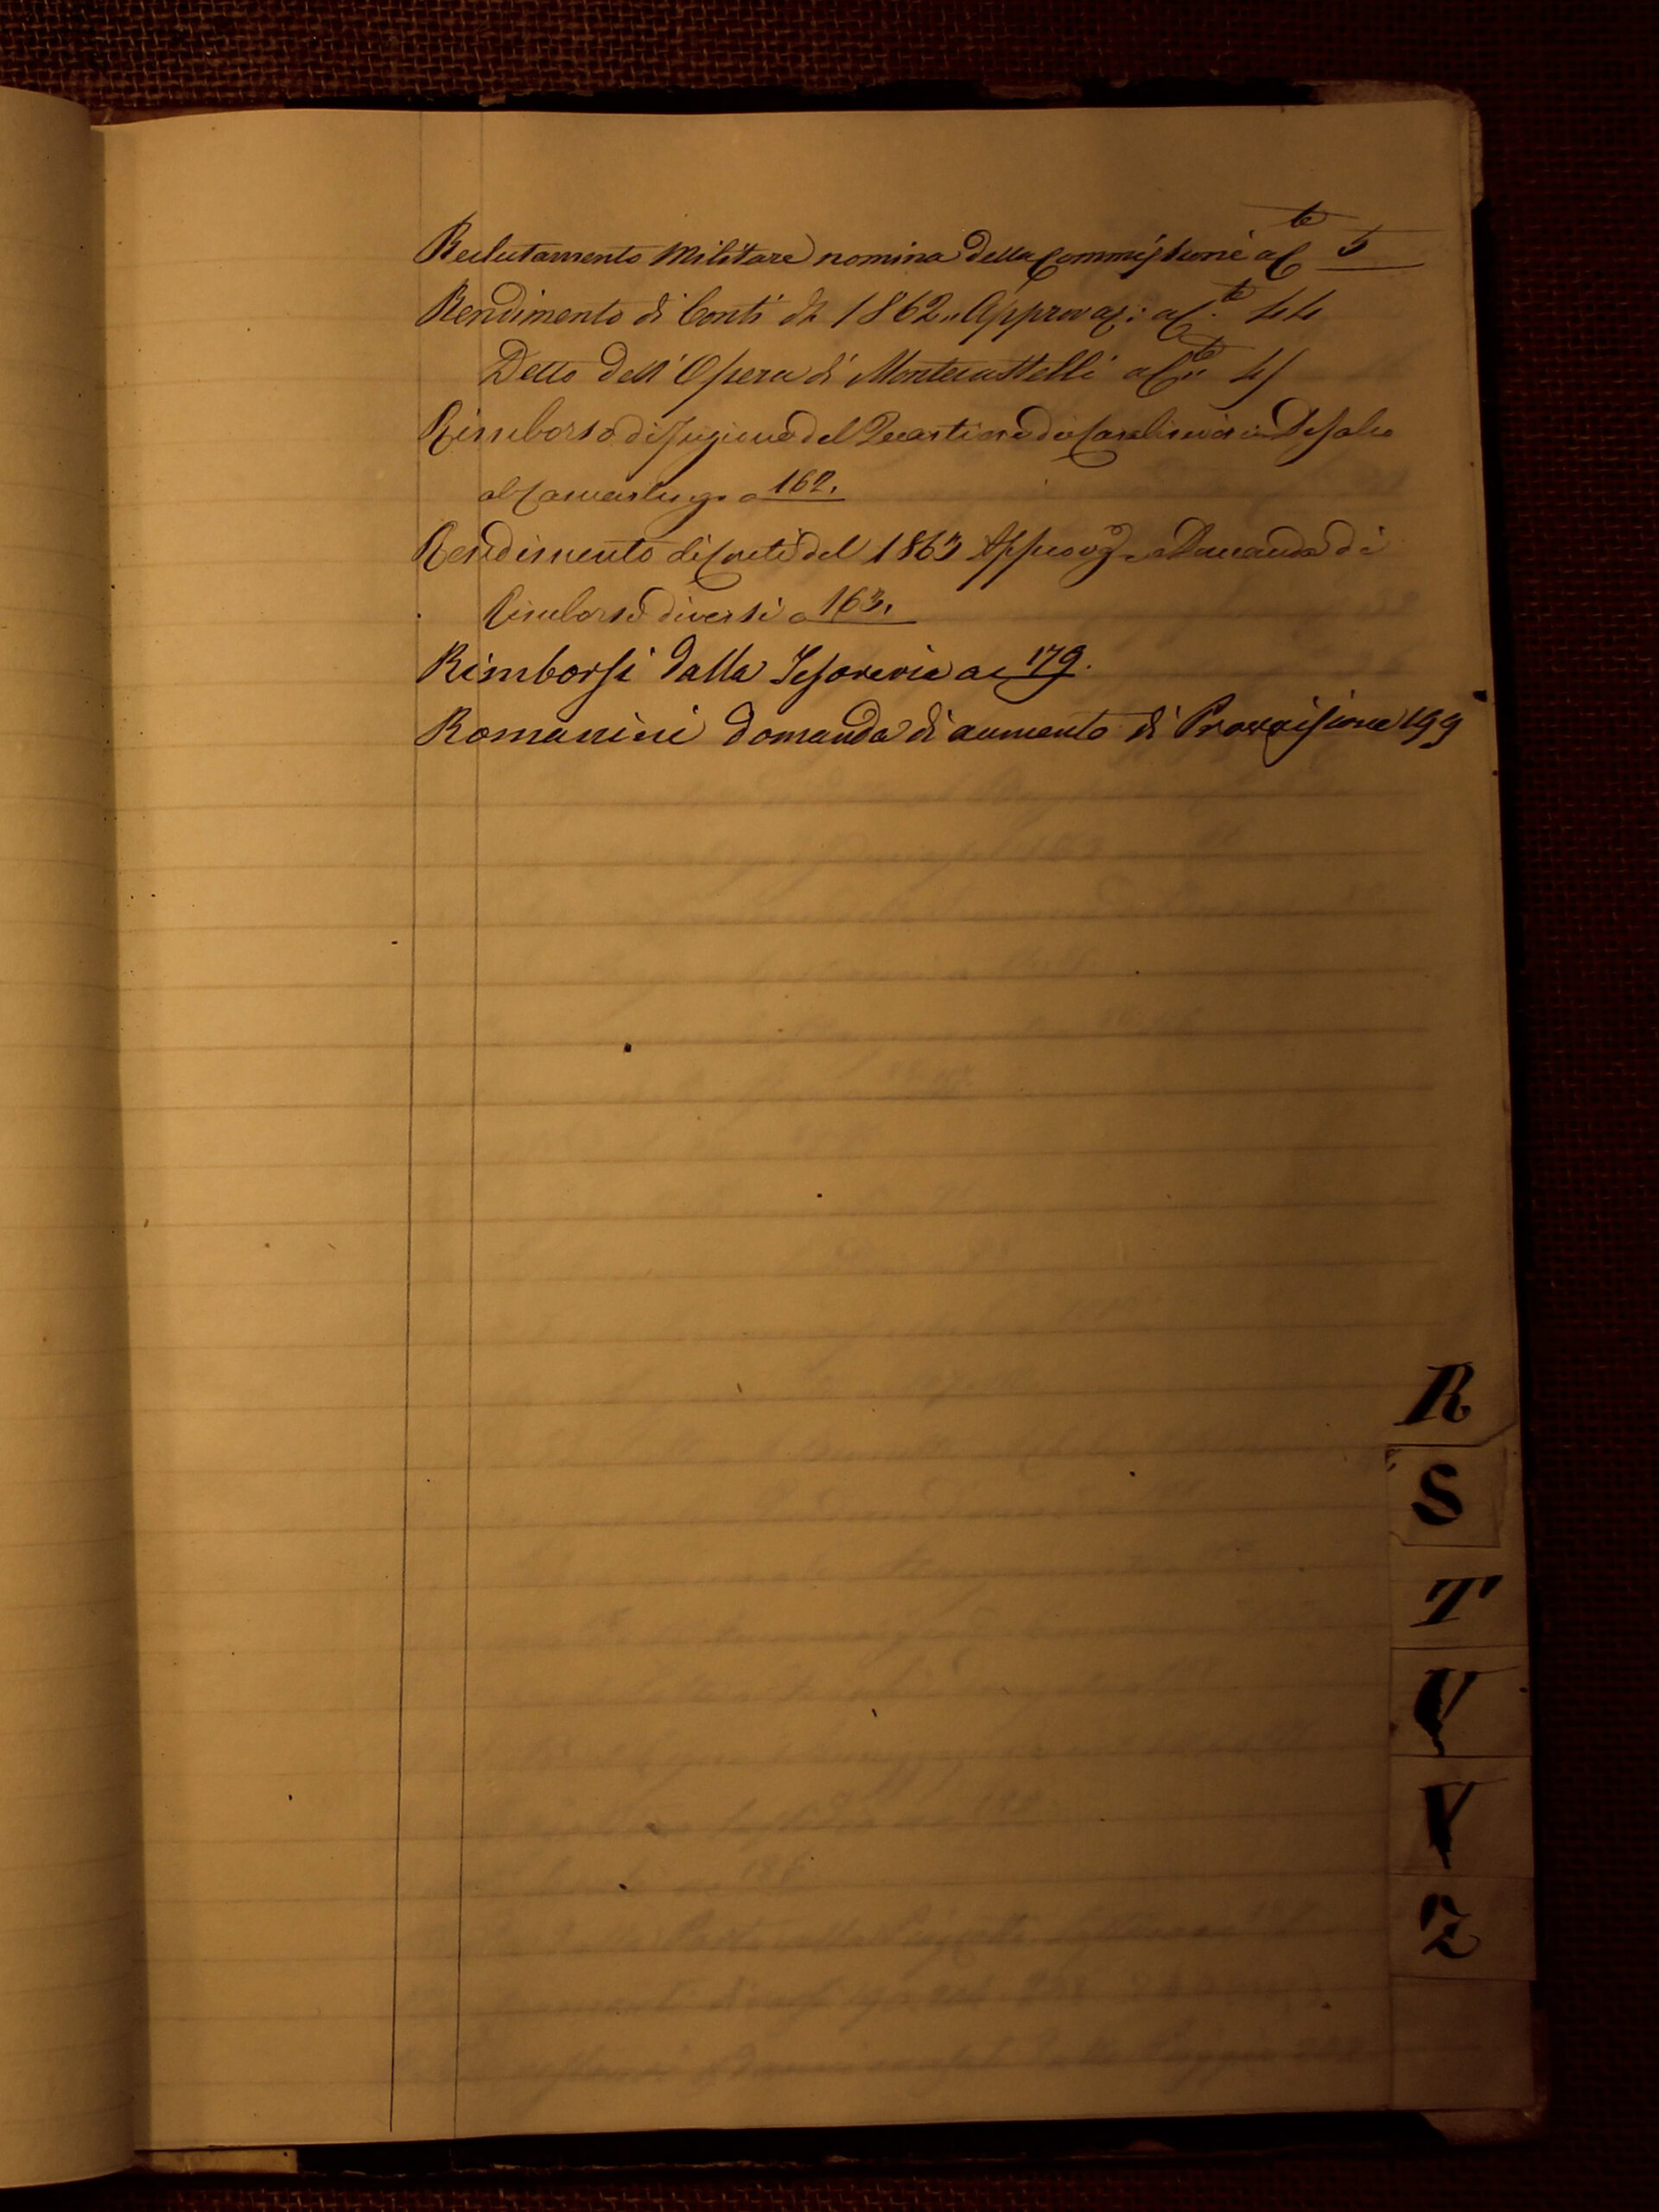 Reclutamento Militare nomina della Commissione a C.te 5
Rendimento di Conti del 1862 „ Approvaz: a C.te 44
Detto dell'Opera di Montecastelli a C.te 45
Rimborso di pigione del Quartiere dei Carabinieri in
al Camarlingo a 162.
Rendimento di Conti del 1863 Approvaz. e Domanda di
Rimborsi diversi a 163.
Rimborsi dalla Tesoreria a c 179.
Romanini domanda di aumento di Provvisione 199
R
S
T
V
Z